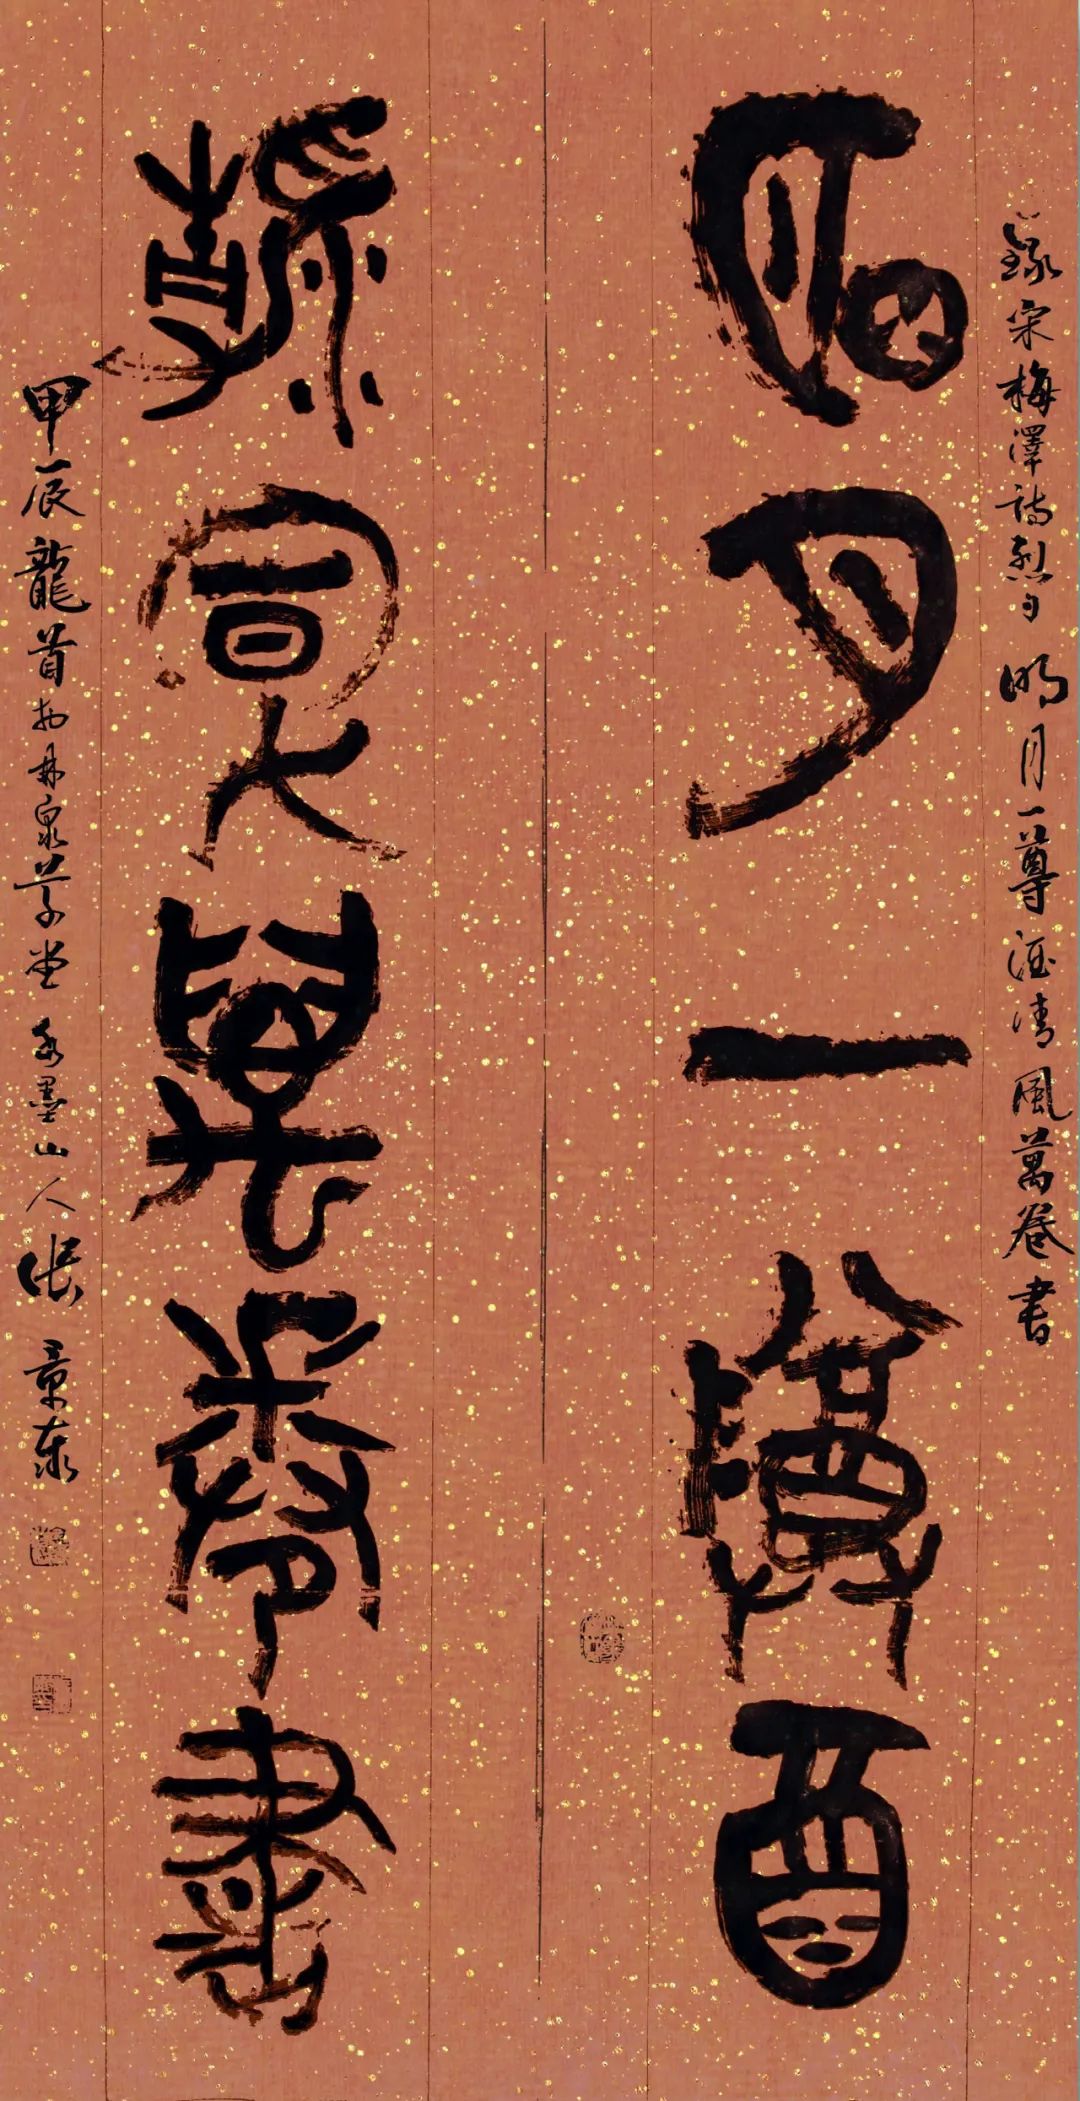 錄宋梅澤詩句明月一尊酒清風萬卷書
明月一尊酒
清風萬卷書
甲辰龍首於林泉草堂墨山人張景